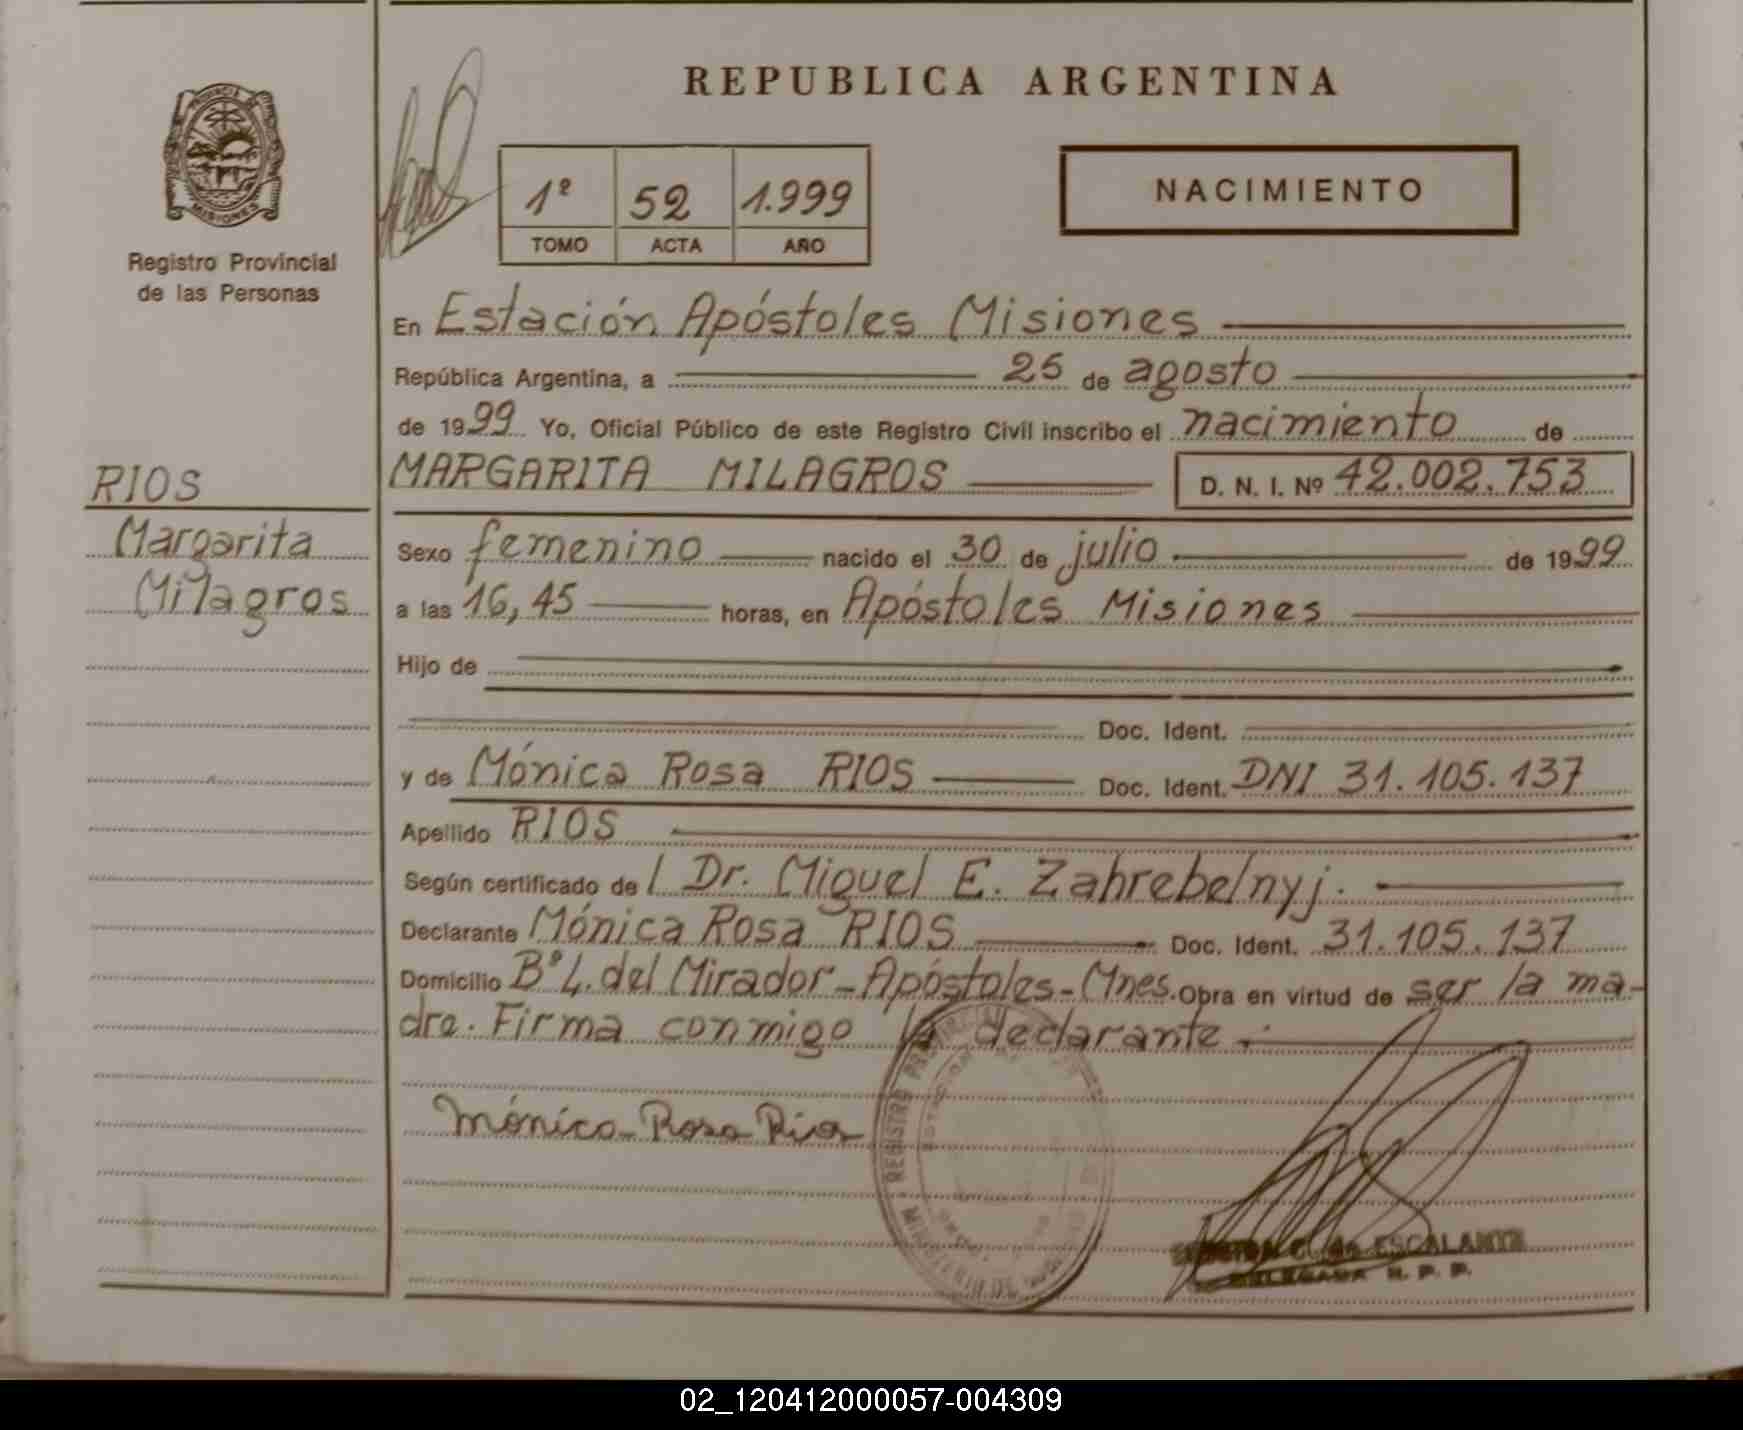 REPUBLICA ARGENTINA
PROVINCIA DE
MISIONES
Registro Provincial
de las Personas
1º 52 1.999
TOMO ACTA AÑO
NACIMIENTO
En Estación Apóstoles Misiones
República Argentina, a 25 de agosto
de 1999 Yo, Oficial Público de este Registro Civil inscribo el nacimiento de
RIOS
MARGARITA MILAGROS D. N. I. Nº 42.002.753
Margarita
Milagros
Sexo femenino nacido el 30 de julio de 1999
a las 16,45 horas, en Apóstoles Misiones
Hijo de
Doc. Ident.
y de Mónica Rosa RIOS Doc. Ident. DNI 31.105.137
Apellido RIOS
Según certificado de l Dr. Miguel E. Zahrebelnyj.
Declarante Mónica Rosa RIOS Doc. Ident. 31.105.137
Domicilio Bº L. del Mirador-Apóstoles-Mnes. Obra en virtud de ser la ma-
dre. Firma conmigo la declarante.
Mónica Rosa Rios
REGISTRO PROVINCIAL
MINISTERIO DE
ESTACION
C. de ESCALANTE
DELEGADA R. P. P.
02_120412000057-004309